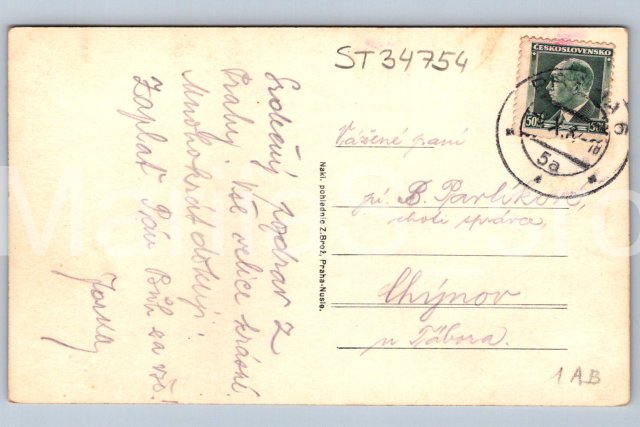 ST 34754
ČESKOSLOVENSKO
50
50
5a
Srdečný pozdrav z
Prahy. Vše velice krásné.
Mnohokrát děkuji.
Zaplať Pán Bůh za vše!
Jarka
Nakl. pohlednic Z. Brož, Praha-Nusle.
Vážené paní
pí. B. Pavlíková,
choti správce,
Chýnov
u Tábora.
1 AB